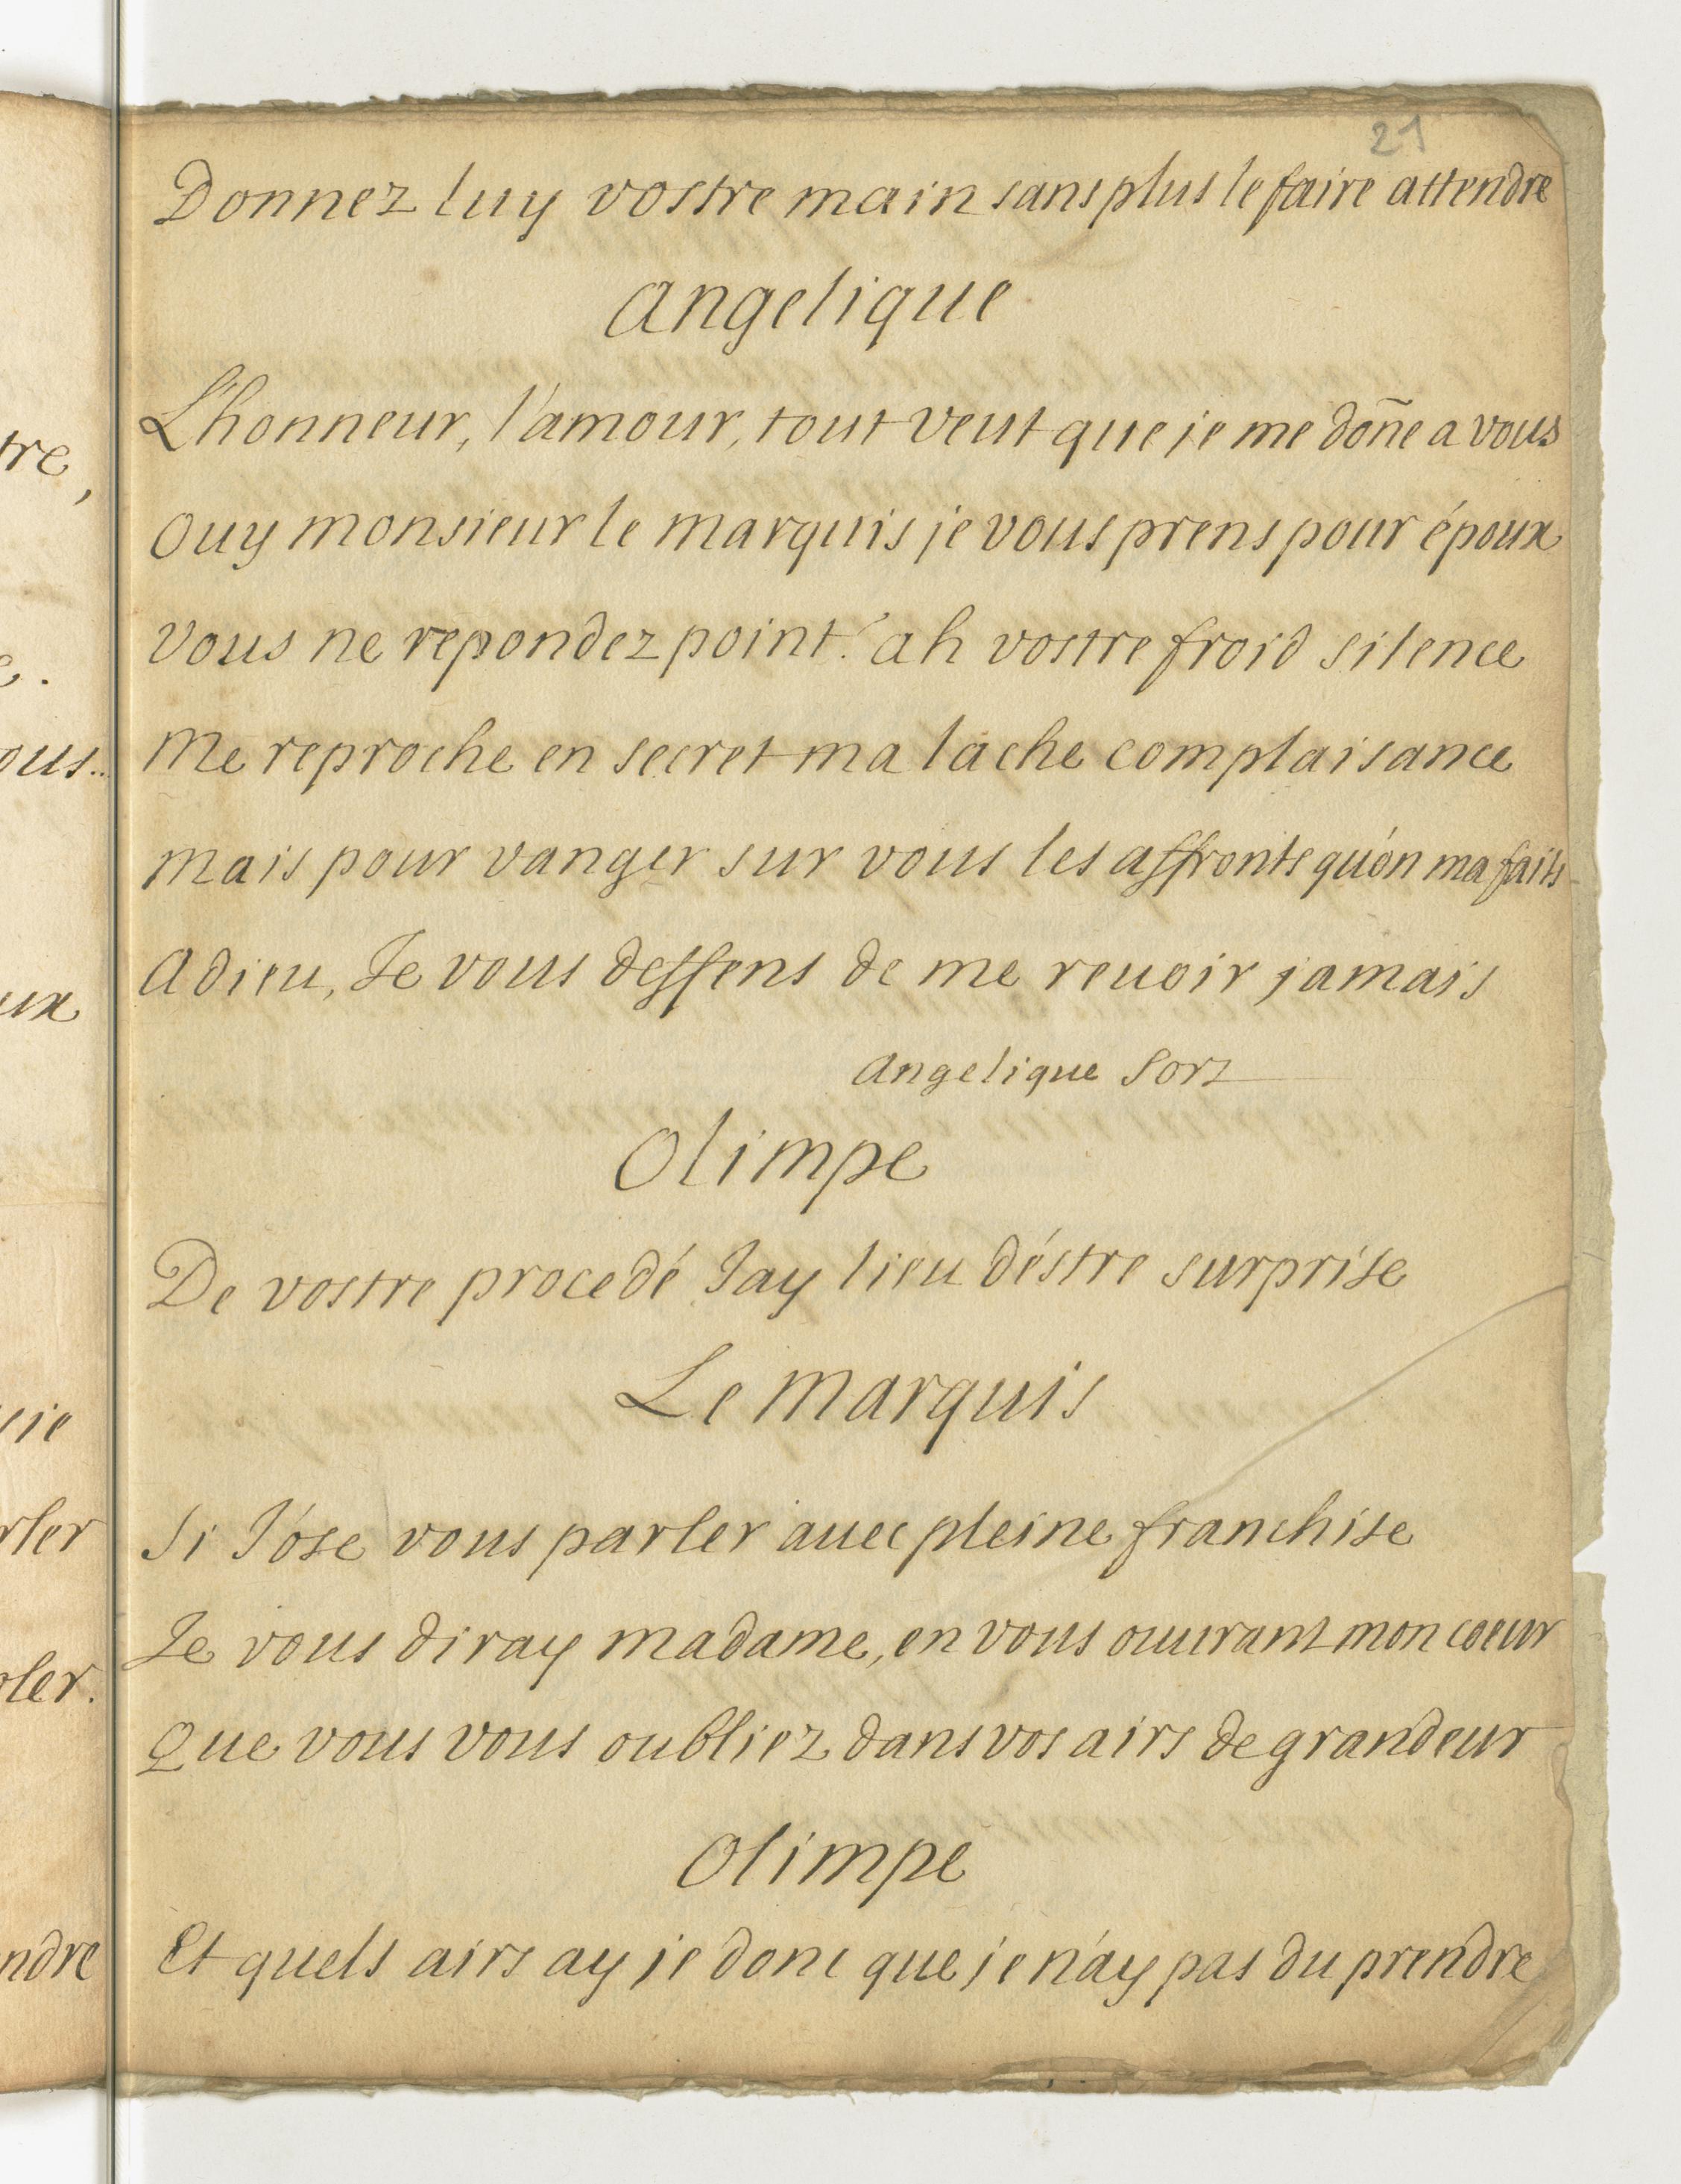 21
Donnez luy vostre main sans plus le faire attendre
angelique
L'honneur, l'amour, tout veut que je me doñe a vous
Ouy monsieur le marquis je vous prens pour époux
vous ne repondez point! ah vostre froid silence
Me reproche en secret ma lache complaisance
mais pour vanger sur vous les affronts qu'on ma faits
adieu, Je vous deffens de me reuoir jamais
Angelique Sort
Olimpe
De vostre procedé Jay lieu d'éstre surprise
Le marquis
Si J'ose vous parler auec pleine franchise
Je vous diray madame, en vous ouurant mon coeur
Que vous vous oubliez dans vos airs de grandeur
Olimpe
Et quels airs ay je donc que je n'ay pas du prendre
tre,
e.
ous..
ux
rler
ler.
ndre